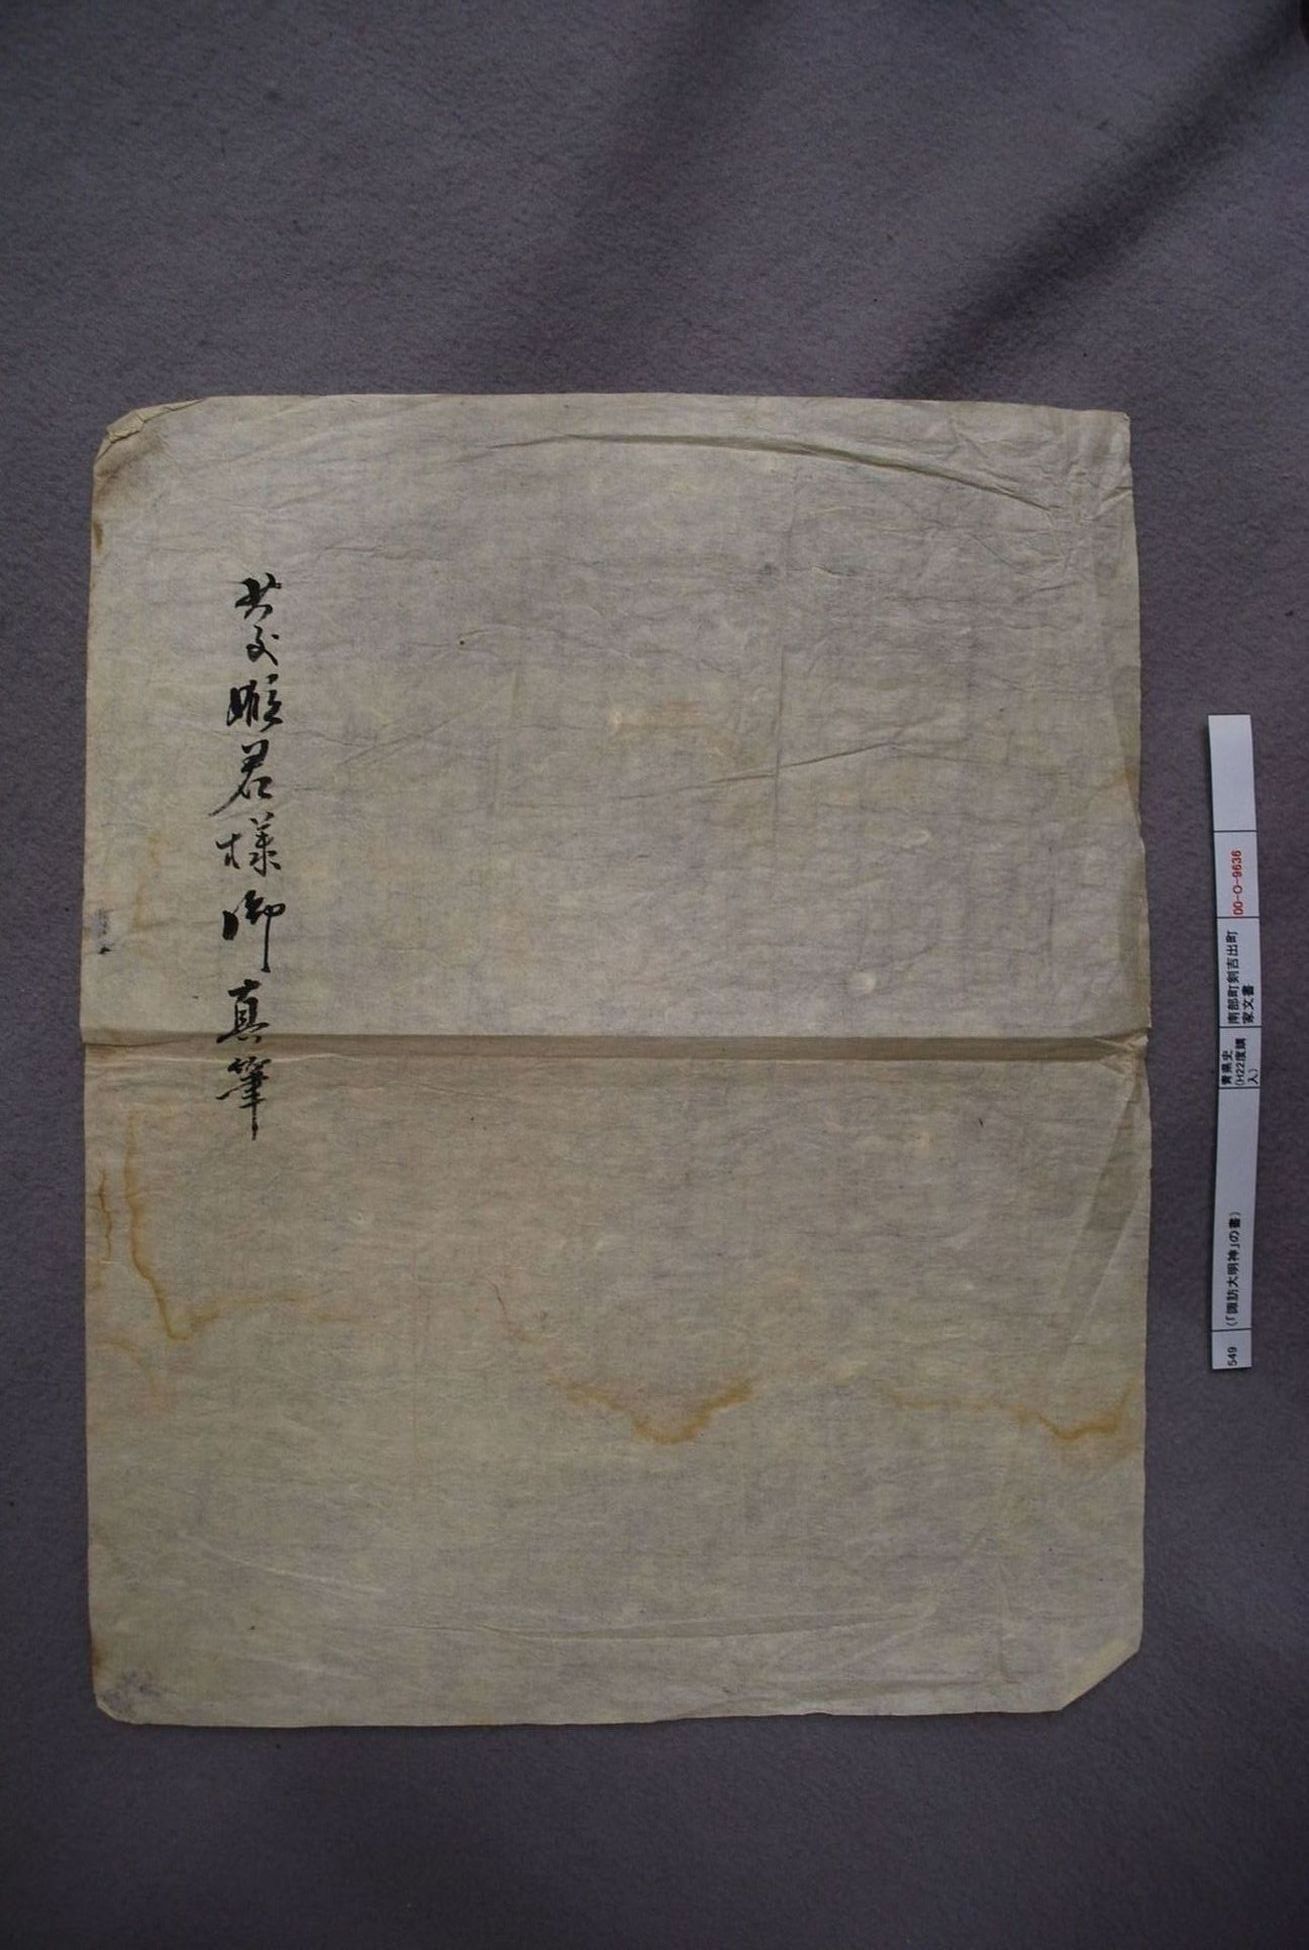 姫君様御真筆
549
(「諏訪大明神」の書)
青県史
(H22度購
入)
南部町剣吉出町
家文書
00-O-9636